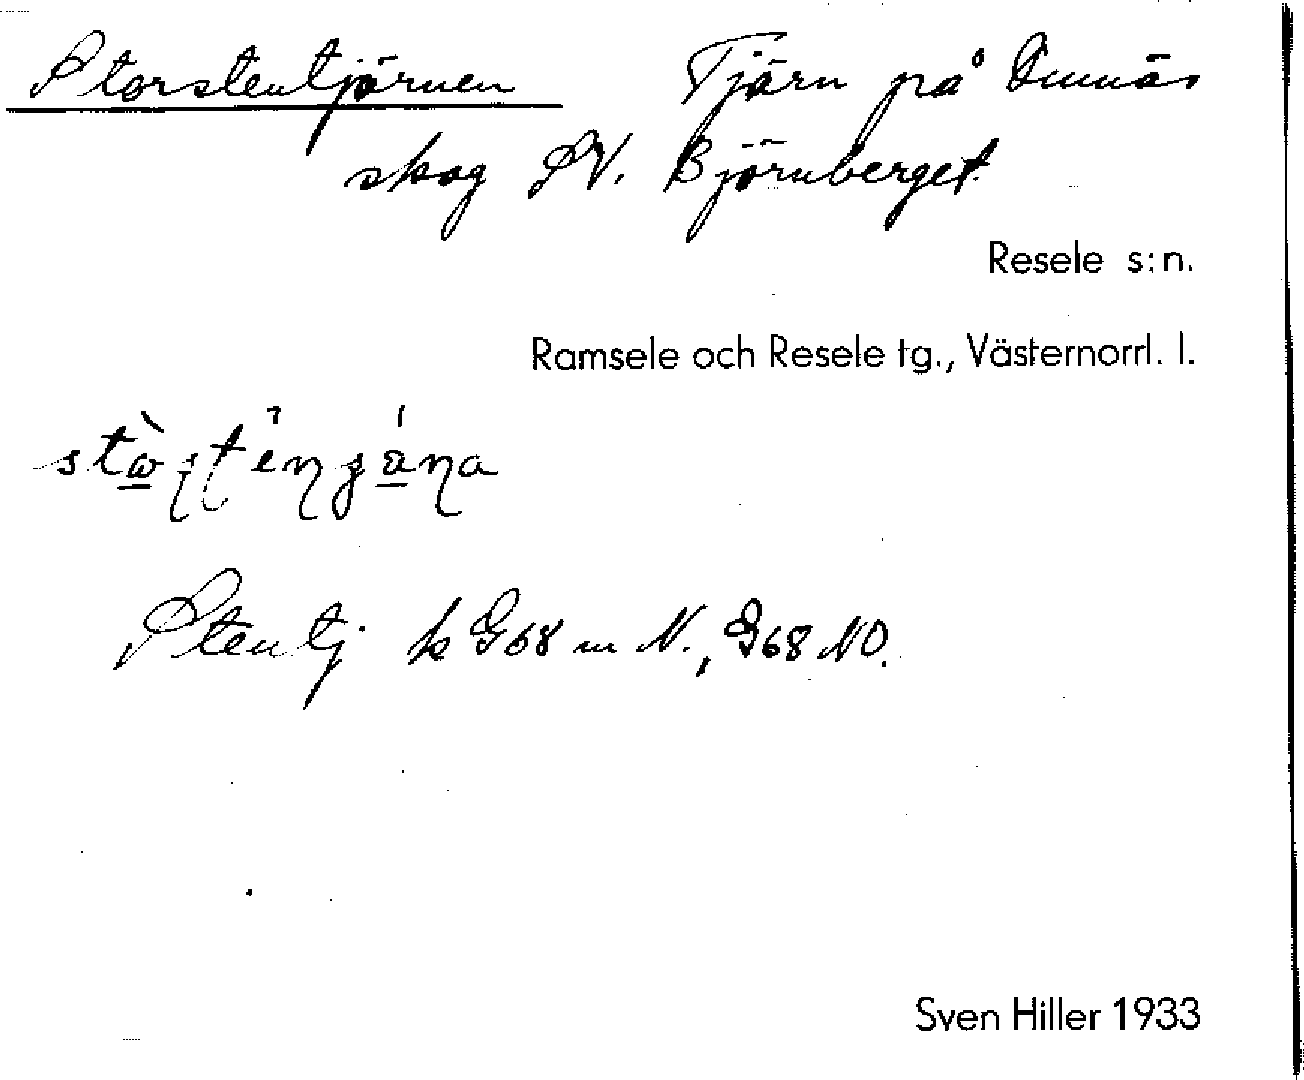 Storstentjärnen Tjärn på Omnäs
skog SV. Björnberget
Resele s:n.
Ramsele och Resele tg., Västernorrl. l.
Stentj k G68 m N., G68 NO.
Sven Hiller 1933